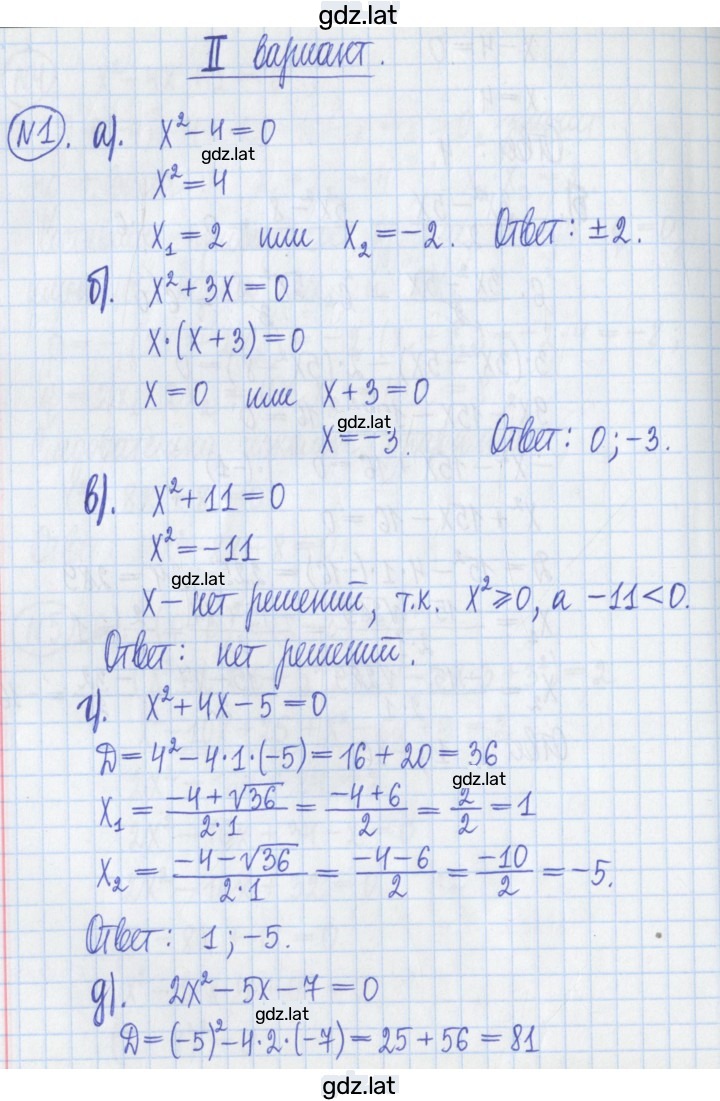 gdz.lat
II вариант.
N1. а). x²-4=0
gdz.lat
x²=4
x₁=2 или x₂=-2. Ответ: ±2.
б). x²+3x=0
x·(x+3)=0
x=0 или x+3=0
gdz.lat
x=-3. Ответ: 0;-3.
в). x²+11=0
x²=-11
gdz.lat
x-нет решений, т.к. x²⩾0, а -11<0.
Ответ: нет решений.
г). x²+4x-5=0
Д=4²-4·1·(-5)=16+20=36
gdz.lat
x₁=(-4+√36)/(2·1)=(-4+6)/2=2/2=1
x₂=(-4-√36)/(2·1)=(-4-6)/2=-10/2=-5.
Ответ: 1;-5.
д). 2x²-5x-7=0
gdz.lat
Д=(-5)²-4·2·(-7)=25+56=81
gdz.lat